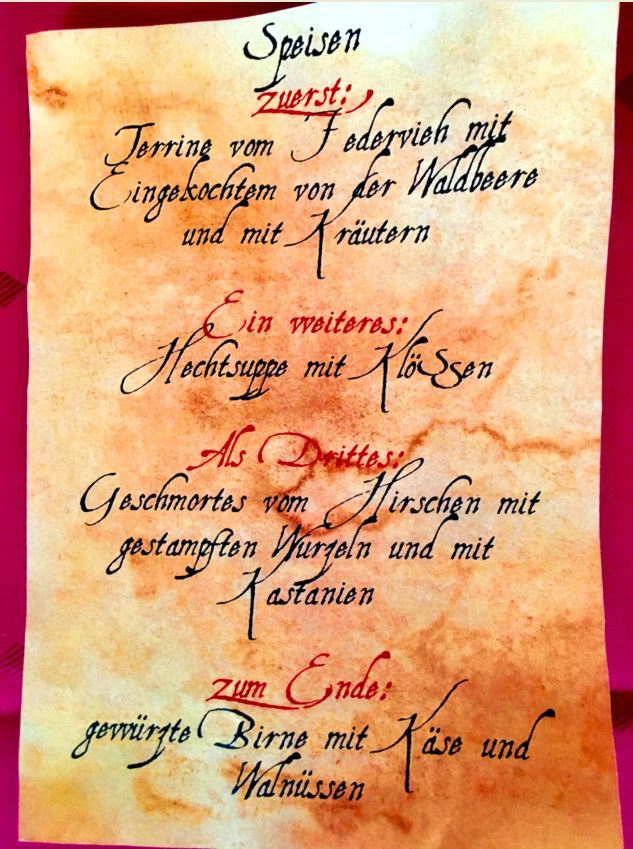 Speisen
zuerst:
Terrine vom Federvieh mit
Eingekochtem von der Waldbeere
und mit Kräutern
Ein weiteres:
Hechtsuppe mit KlöSSen
Als Drittes:
Geschmortes vom Hirschen mit
gestampften Wurzeln und mit
Kastanien
zum Ende:
gewürzte Birne mit Käse und
Walnüssen